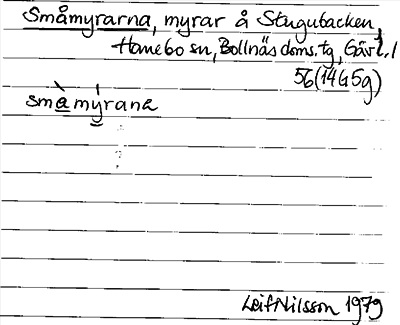 Småmyrarna, myrar å Stugubacken,
Hanebo sn, Bollnäs doms.tg, Gävl.l
56(14G5g)
småmýrana
Leif Nilsson 1979